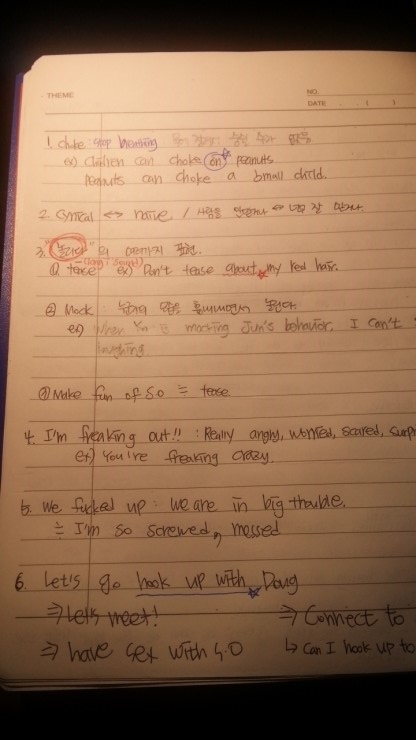 THEME
NO.
DATE . . ( )
1. Choke stop breathing
ex) Children can choke on peanuts
Peanuts can choke a small child.
2. Cynical ↔ naive / 사람을 안믿어서 ↔ 너무 잘 믿어서
3. "놀리다" 의 여러가지 표현.
① tease ex) Don't tease about my red hair.
② Mock : 누군가의 모습을 흉내내면서 놀린다.
ex) When Yu is mocking Jun's behavior, I can't
laughing.
③ Make fun of S.O ≒ tease
4. I'm freaking out!! : Really angry, worried, scared, surp
ex) You're freaking crazy.
5. We fucked up : we are in big trouble.
≒ I'm so screwed, messed
6. Let's go hook up with Doug
⇒ Let's meet! ⇒ Connect to
⇒ have sex with S.O ↳ Can I hook up to